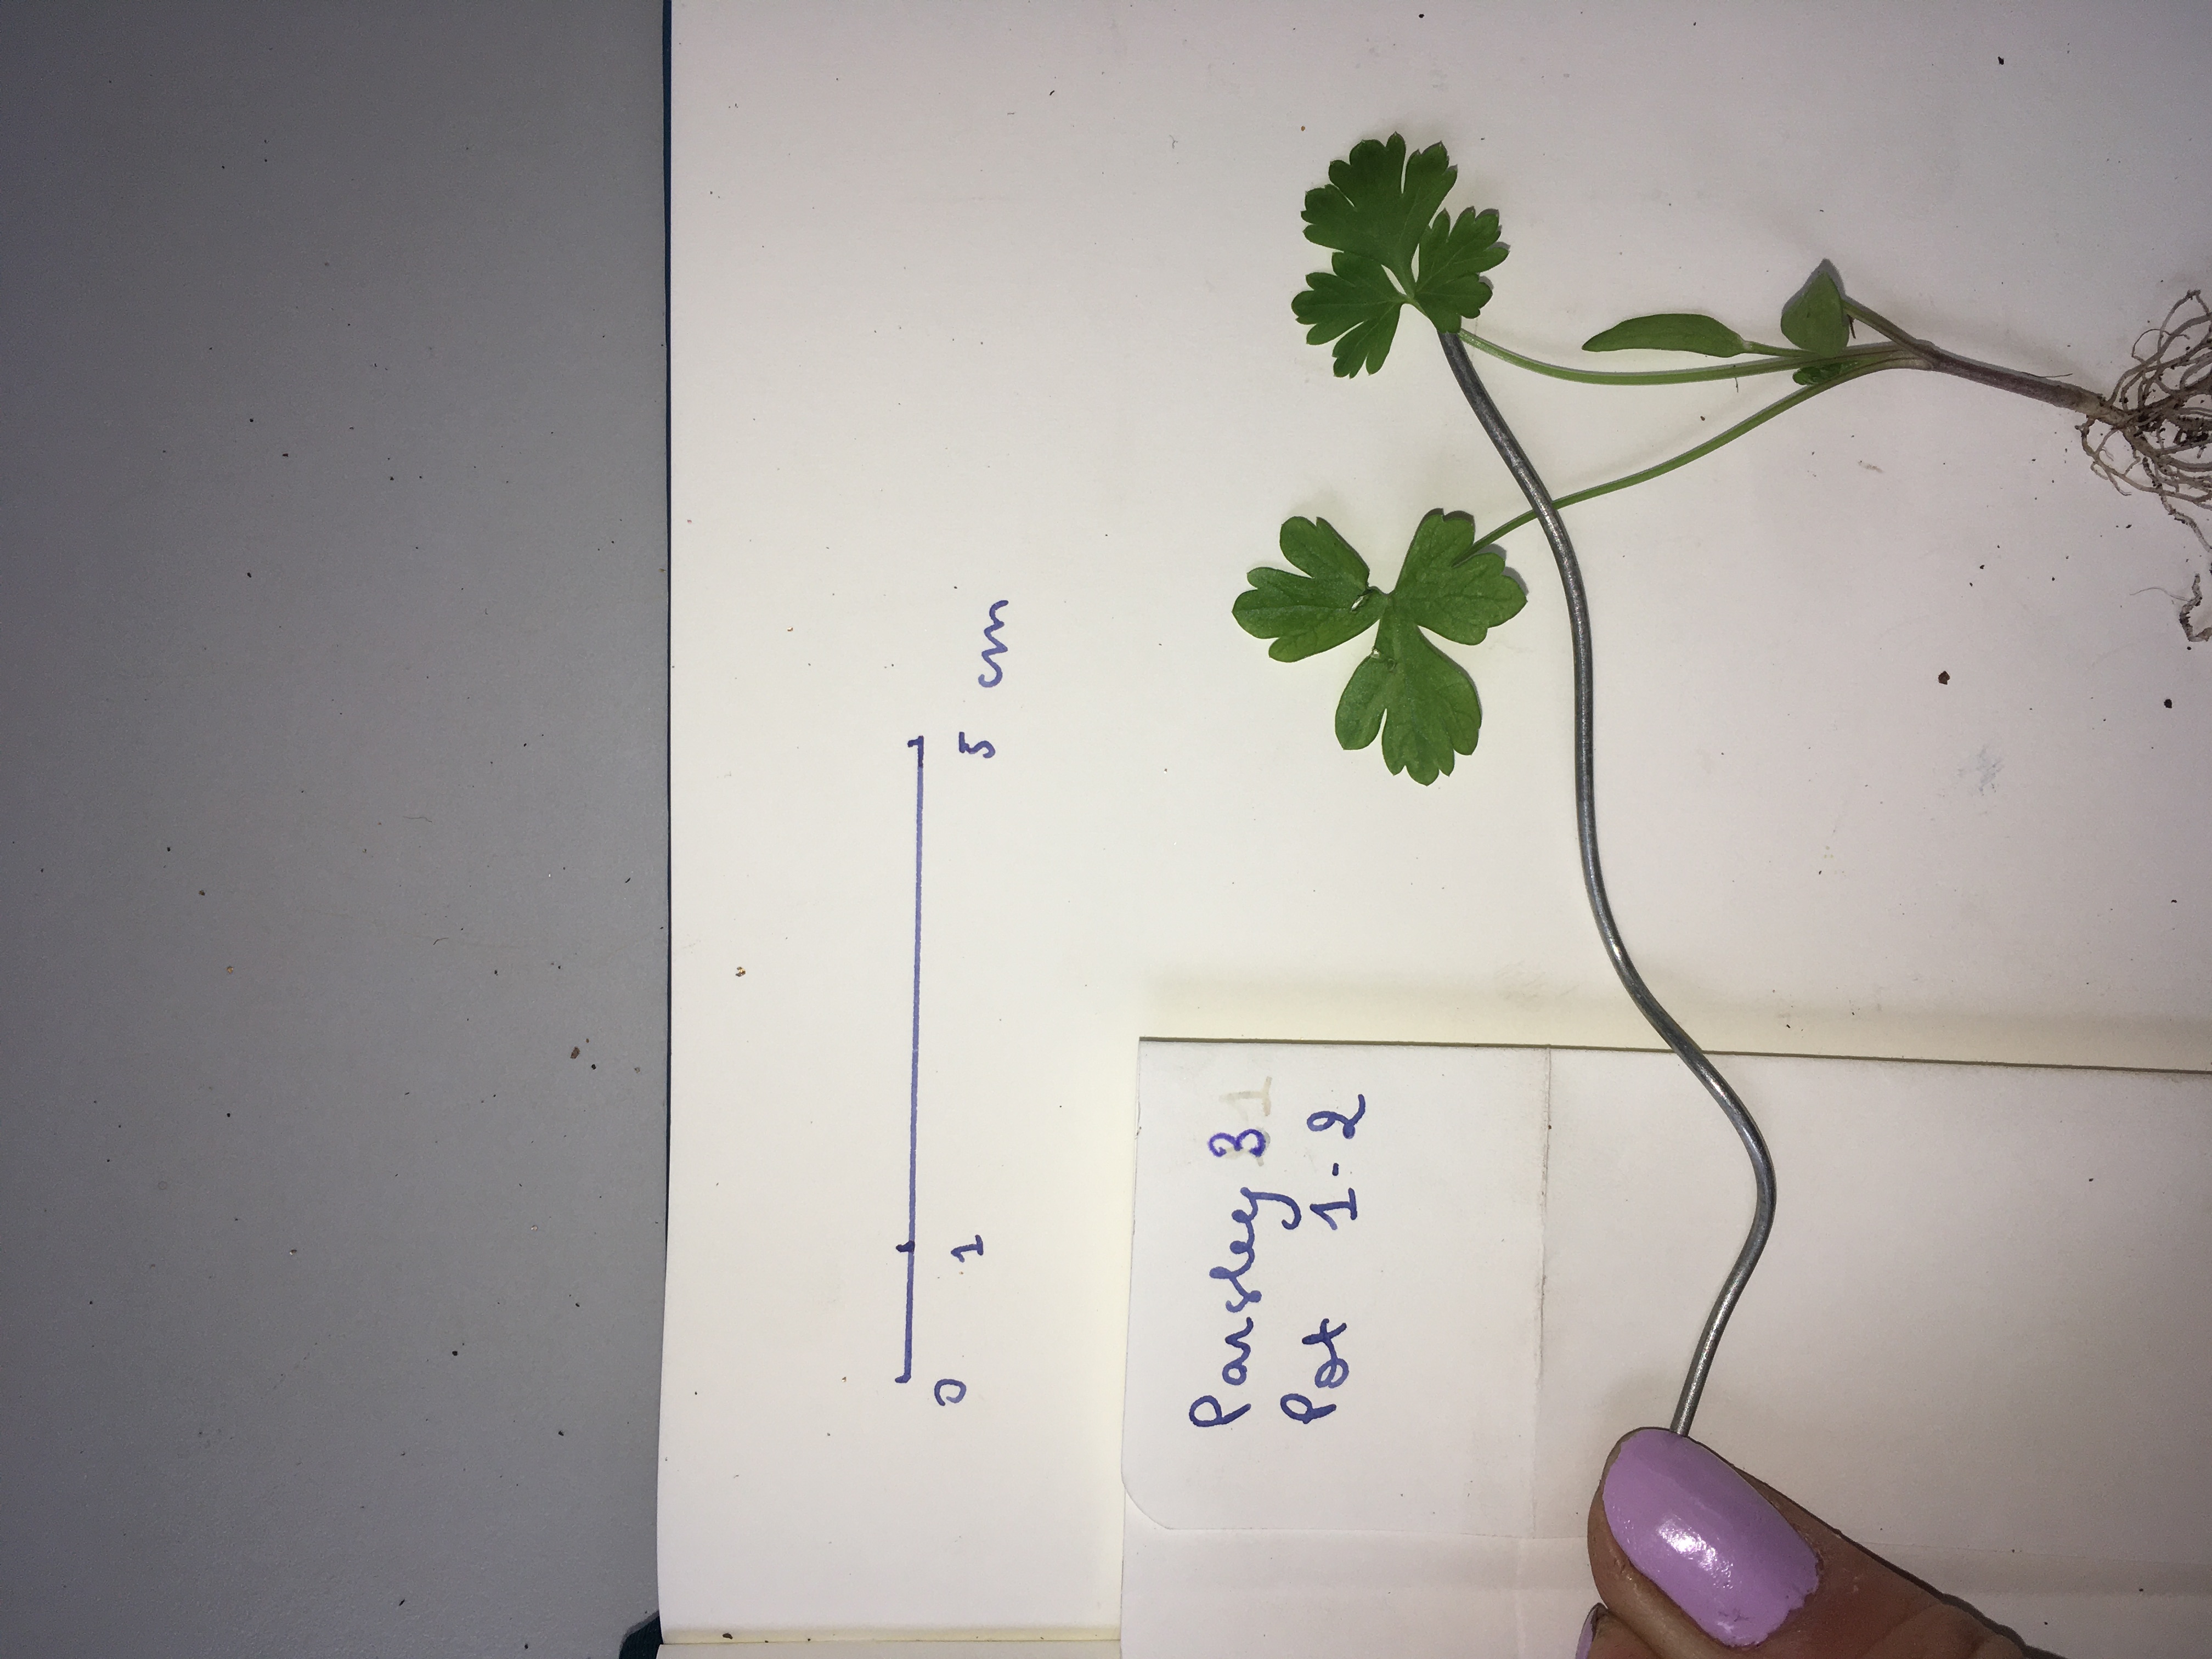 0 1 5 cm
Parsley 3
Pot 1-2